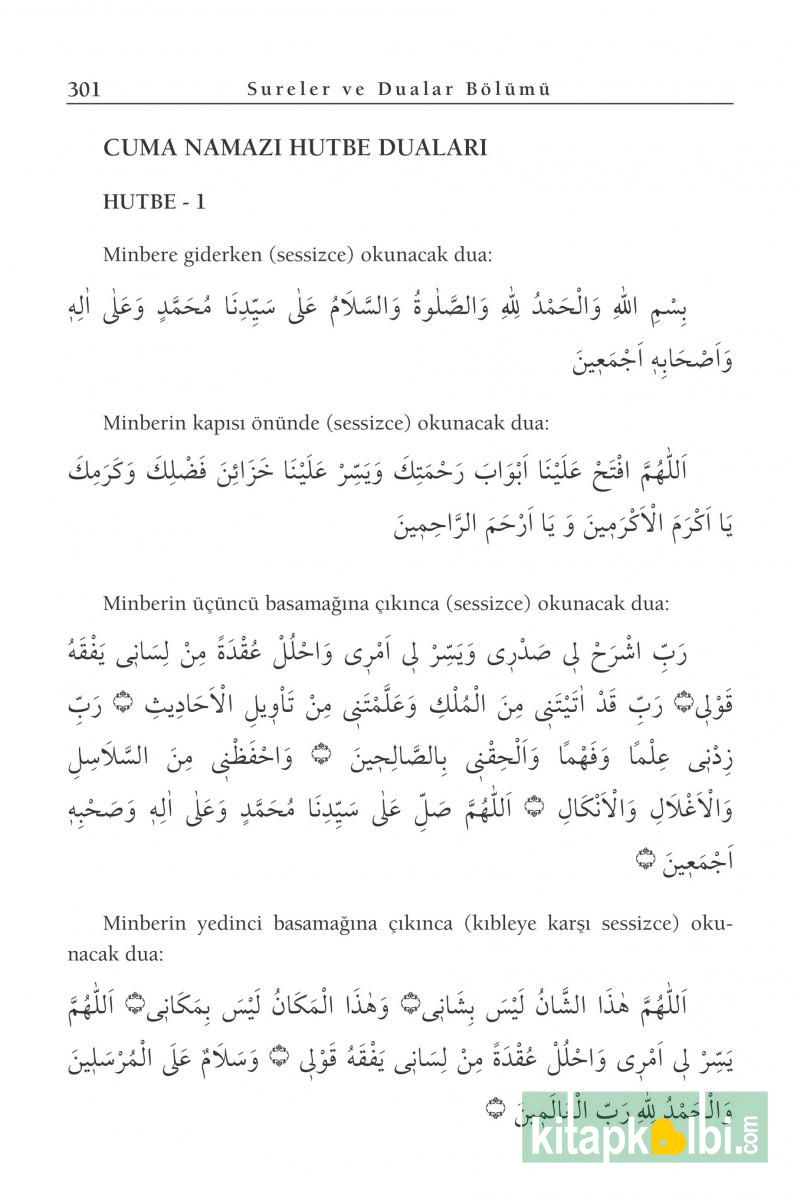 301
Sureler ve Dualar Bölümü
CUMA NAMAZI HUTBE DUALARI
HUTBE - 1
Minbere giderken (sessizce) okunacak dua:
بِسْمِ اللّٰهِ وَالْحَمْدُ لِلّٰهِ وَالصَّلٰوةُ وَالسَّلَامُ عَلٰى سَيِّدِنَا مُحَمَّدٍ وَعَلٰى اٰلِهٖ
وَاَصْحَابِهٖ اَجْمَعٖينَ
Minberin kapısı önünde (sessizce) okunacak dua:
اَللّٰهُمَّ افْتَحْ عَلَيْنَا اَبْوَابَ رَحْمَتِكَ وَيَسِّرْ عَلَيْنَا خَزَائِنَ فَضْلِكَ وَكَرَمِكَ
يَا اَكْرَمَ الْاَكْرَمٖينَ وَ يَا اَرْحَمَ الرَّاحِمٖينَ
Minberin üçüncü basamağına çıkınca (sessizce) okunacak dua:
رَبِّ اشْرَحْ لٖى صَدْرٖى وَيَسِّرْ لٖى اَمْرٖى وَاحْلُلْ عُقْدَةً مِنْ لِسَانٖى يَفْقَهُ
قَوْلٖى۝ رَبِّ قَدْ اٰتَيْتَنٖى مِنَ الْمُلْكِ وَعَلَّمْتَنٖى مِنْ تَاْوٖيلِ الْاَحَادِيثِ ۝ رَبِّ
زِدْنٖى عِلْمًا وَفَهْمًا وَاَلْحِقْنٖى بِالصَّالِحٖينَ ۝ وَاحْفَظْنٖى مِنَ السَّلَاسِلِ
وَالْاَغْلَالِ وَالْاَنْكَالِ ۝ اَللّٰهُمَّ صَلِّ عَلٰى سَيِّدِنَا مُحَمَّدٍ وَعَلٰى اٰلِهٖ وَصَحْبِهٖ
اَجْمَعٖينَ ۝
Minberin yedinci basamağına çıkınca (kıbleye karşı sessizce) oku-
nacak dua:
اَللّٰهُمَّ هٰذَا الشَّانُ لَيْسَ بِشَانٖى۝ وَهٰذَا الْمَكَانُ لَيْسَ بِمَكَانٖى۝ اَللّٰهُمَّ
يَسِّرْ لٖى اَمْرٖى وَاحْلُلْ عُقْدَةً مِنْ لِسَانٖى يَفْقَهُ قَوْلٖى ۝ وَسَلَامٌ عَلَى الْمُرْسَلٖينَ
وَالْحَمْدُ لِلّٰهِ رَبِّ الْعَالَمٖينَ ۝
kitapkalbi.com